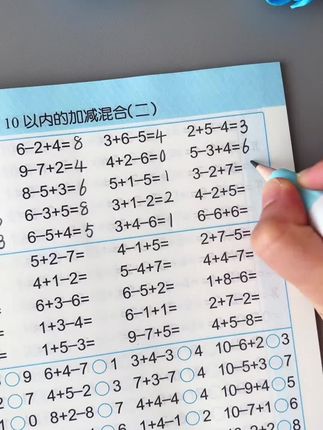 10以内的加减混合(二)
6-2+4=8 3+6-5=4 2+5-4=3
9-7+2=4 4+2-6=0 5-3+4=6
8-5+3=6 5+1-5=1 3-2+7=
6-3+5=8 3+1-2=2 4-2+5=
6-5+4=5 3+4-6=1 6-6+6=
5+2-7= 4-1+5= 2+7-5=
4+1-2= 5-4+7= 4+4-7=
6+3-6= 6-5+2= 1+8-6=
1+3-4= 6-1+1= 2+7-2=
1+5-3= 9-7+5= 4+5-8=
○9 6+4-7○1 3+4-3○4 10-6+2○3
○7 4+5-2○3 7+3-7○4 10-5+3○7
○0 8+2-8○7 4+4-4○4 10-9+4○5
1+4-1○2 10-7+1○6